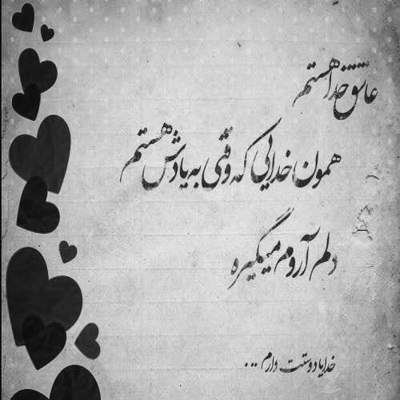 عاشق خدا هستم
همون خدایی که وقتی به یادش هستم
دلم آروم میگیره
خدایا دوستت دارم ...